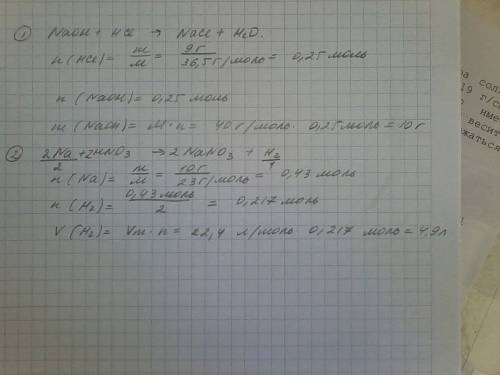 ① NaOH + HCl → NaCl + H₂O.
n(HCl) = m/M = 9г/36,5г/моль = 0,25 моль
n(NaOH) = 0,25 моль
m(NaOH) = M·n = 40 г/моль · 0,25 моль = 10 г
② 2Na/2 + 2HNO₃ → 2NaNO₃ + H₂/1
n(Na) = m/M = 10г/23г/моль = 0,43 моль
n(H₂) = 0,43 моль/2 = 0,217 моль
V(H₂) = Vm·n = 22,4 л/моль 0,217 моль = 4,9л
а сол
19 г/с
име
весит
жаться